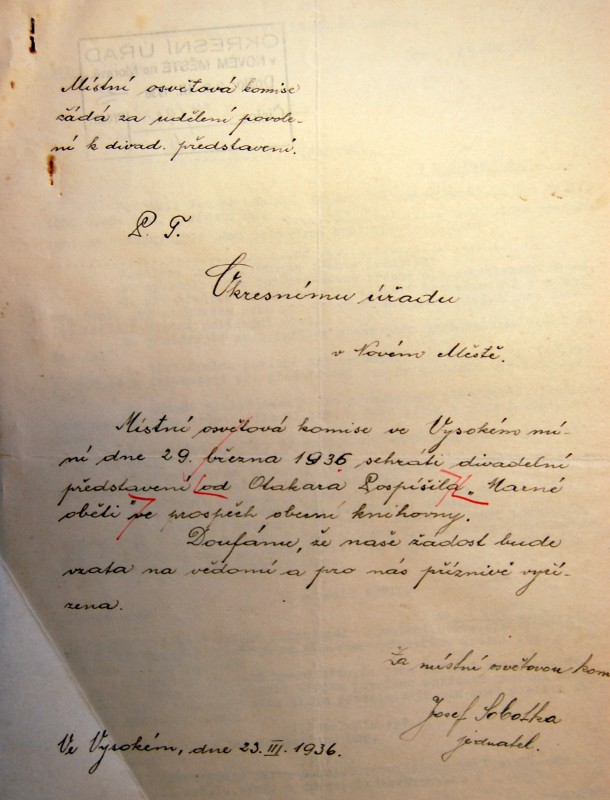 OKRESNÍ ÚŘAD
v NOVÉM MĚSTĚ na Mor
Místní osvětová komise
žádá za udělení povole-
ní k divad. představení.
P. T.
Okresnímu úřadu
v Novém Městě.
Místní osvětová komise ve Vysokém mí-
ní dne 29. března 1936 sehráti divadelní
představení od Otakara Pospíšila „Marné
oběti" ve prospěch obecní knihovny.
Doufáme, že naše žádost bude
vzata na vědomí a pro nás příznivě vyří-
zena.
Za místní osvětovou kom
Josef Sobotka
jednatel.
Ve Vysokém, dne 23. III. 1936.